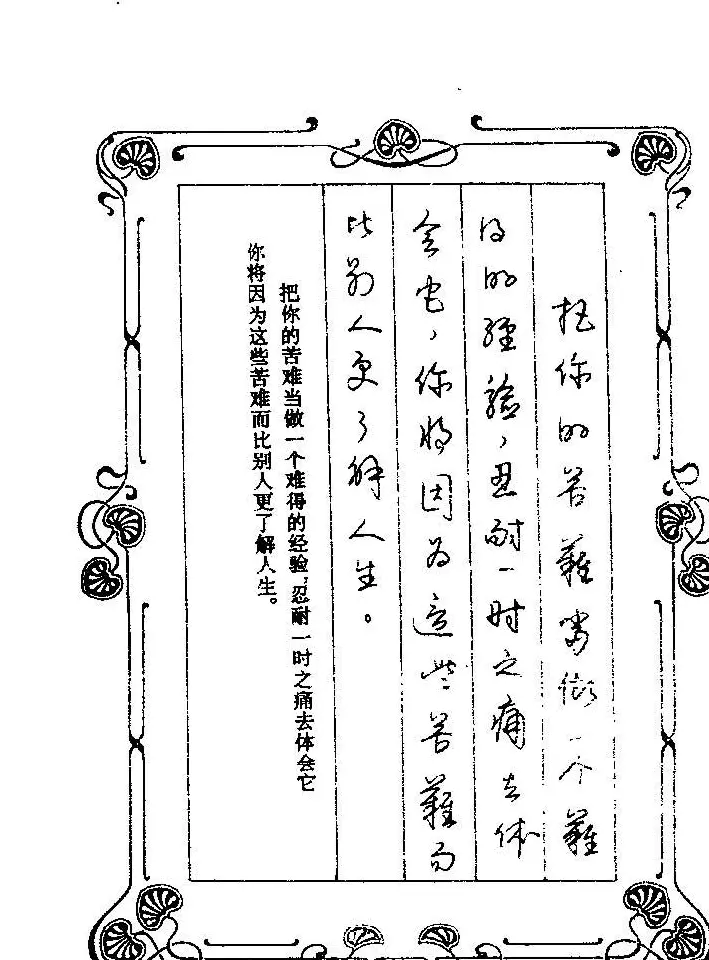 把你的苦難當做一个難
得的經驗，忍耐一时之痛去体
会它，你將因为這些苦難而
比别人更了解人生。
把你的苦难当做一个难得的经验，忍耐一时之痛去体会它
你将因为这些苦难而比别人更了解人生。